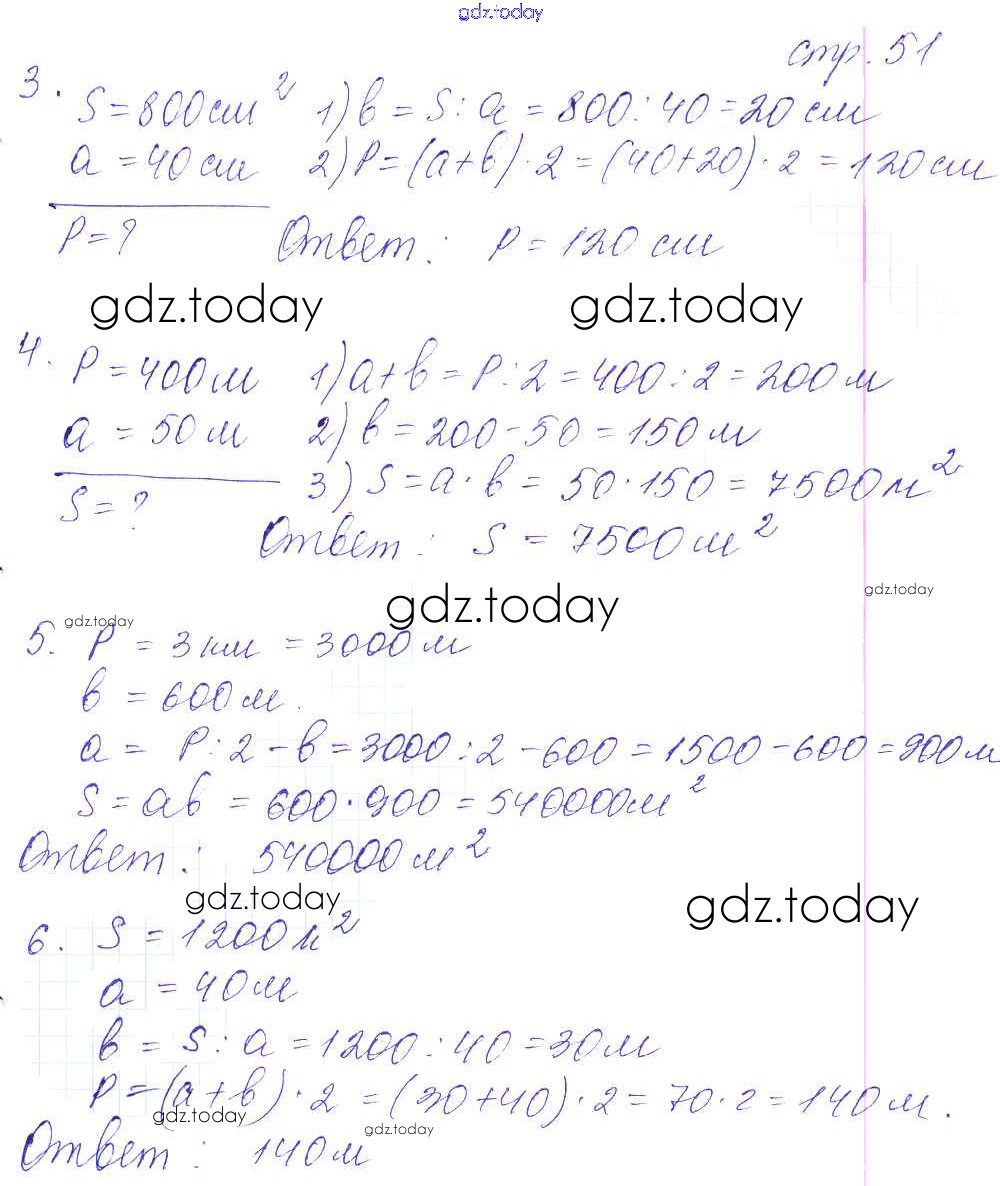 gdz.today
стр. 51
3. S = 800 см² 1) b = S : a = 800 : 40 = 20 см
a = 40 см 2) P = (a + b) · 2 = (40 + 20) · 2 = 120 см
P = ? Ответ: P = 120 см
gdz.today gdz.today
4. P = 400 м 1) a + b = P : 2 = 400 : 2 = 200 м
a = 50 м 2) b = 200 - 50 = 150 м
S = ? 3) S = a · b = 50 · 150 = 7500 м²
Ответ: S = 7500 м²
gdz.today gdz.today
gdz.today
5. P = 3 км = 3000 м
b = 600 м.
a = P : 2 - b = 3000 : 2 - 600 = 1500 - 600 = 900 м
S = ab = 600 · 900 = 540000 м²
Ответ: 540000 м²
gdz.today gdz.today
6. S = 1200 м²
a = 40 м
b = S : a = 1200 : 40 = 30 м
P = (a + b) · 2 = (30 + 40) · 2 = 70 · 2 = 140 м.
gdz.today gdz.today
Ответ: 140 м